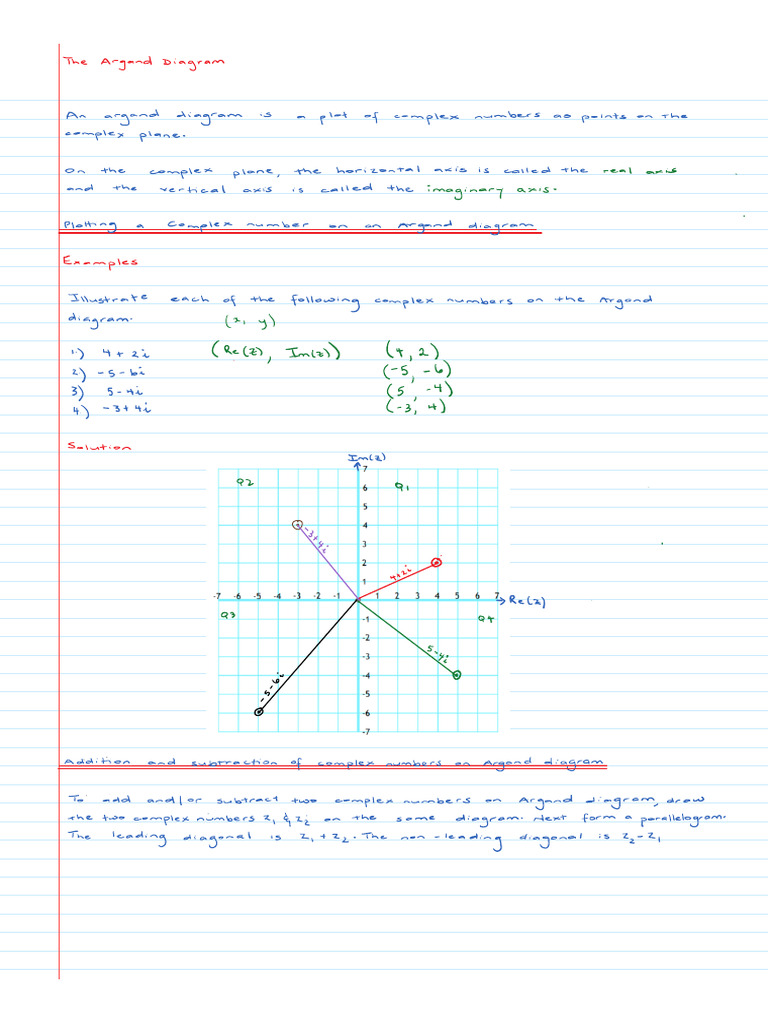 The Argand Diagram
An argand diagram is a plot of complex numbers as points on the
complex plane.
On the complex plane, the horizontal axis is called the real axis
and the vertical axis is called the imaginary axis.
Plotting a Complex number on an Argand diagram
Examples
Illustrate each of the following complex numbers on the Argand
diagram. (x, y)
1) 4 + 2i (Re(z), Im(z)) (4, 2)
2) -5 - 6i (-5, -6)
3) 5 - 4i (5, -4)
4) -3 + 4i (-3, 4)
Solution
Im(z)
7
Q2 6 Q1
5
4
-3+4i
3
2
4+2i
1
-7 -6 -5 -4 -3 -2 -1 1 2 3 4 5 6 7 Re(z)
Q3 -1 Q4
-2
-3
5-4i
-4
-5-6i
-5
-6
-7
Addition and subtraction of complex numbers on Argand diagram
To add and/or subtract two complex numbers on Argand diagram, draw
the two complex numbers z₁ & z₂ on the same diagram. Next form a parallelogram.
The leading diagonal is z₁ + z₂. The non-leading diagonal is z₂ - z₁